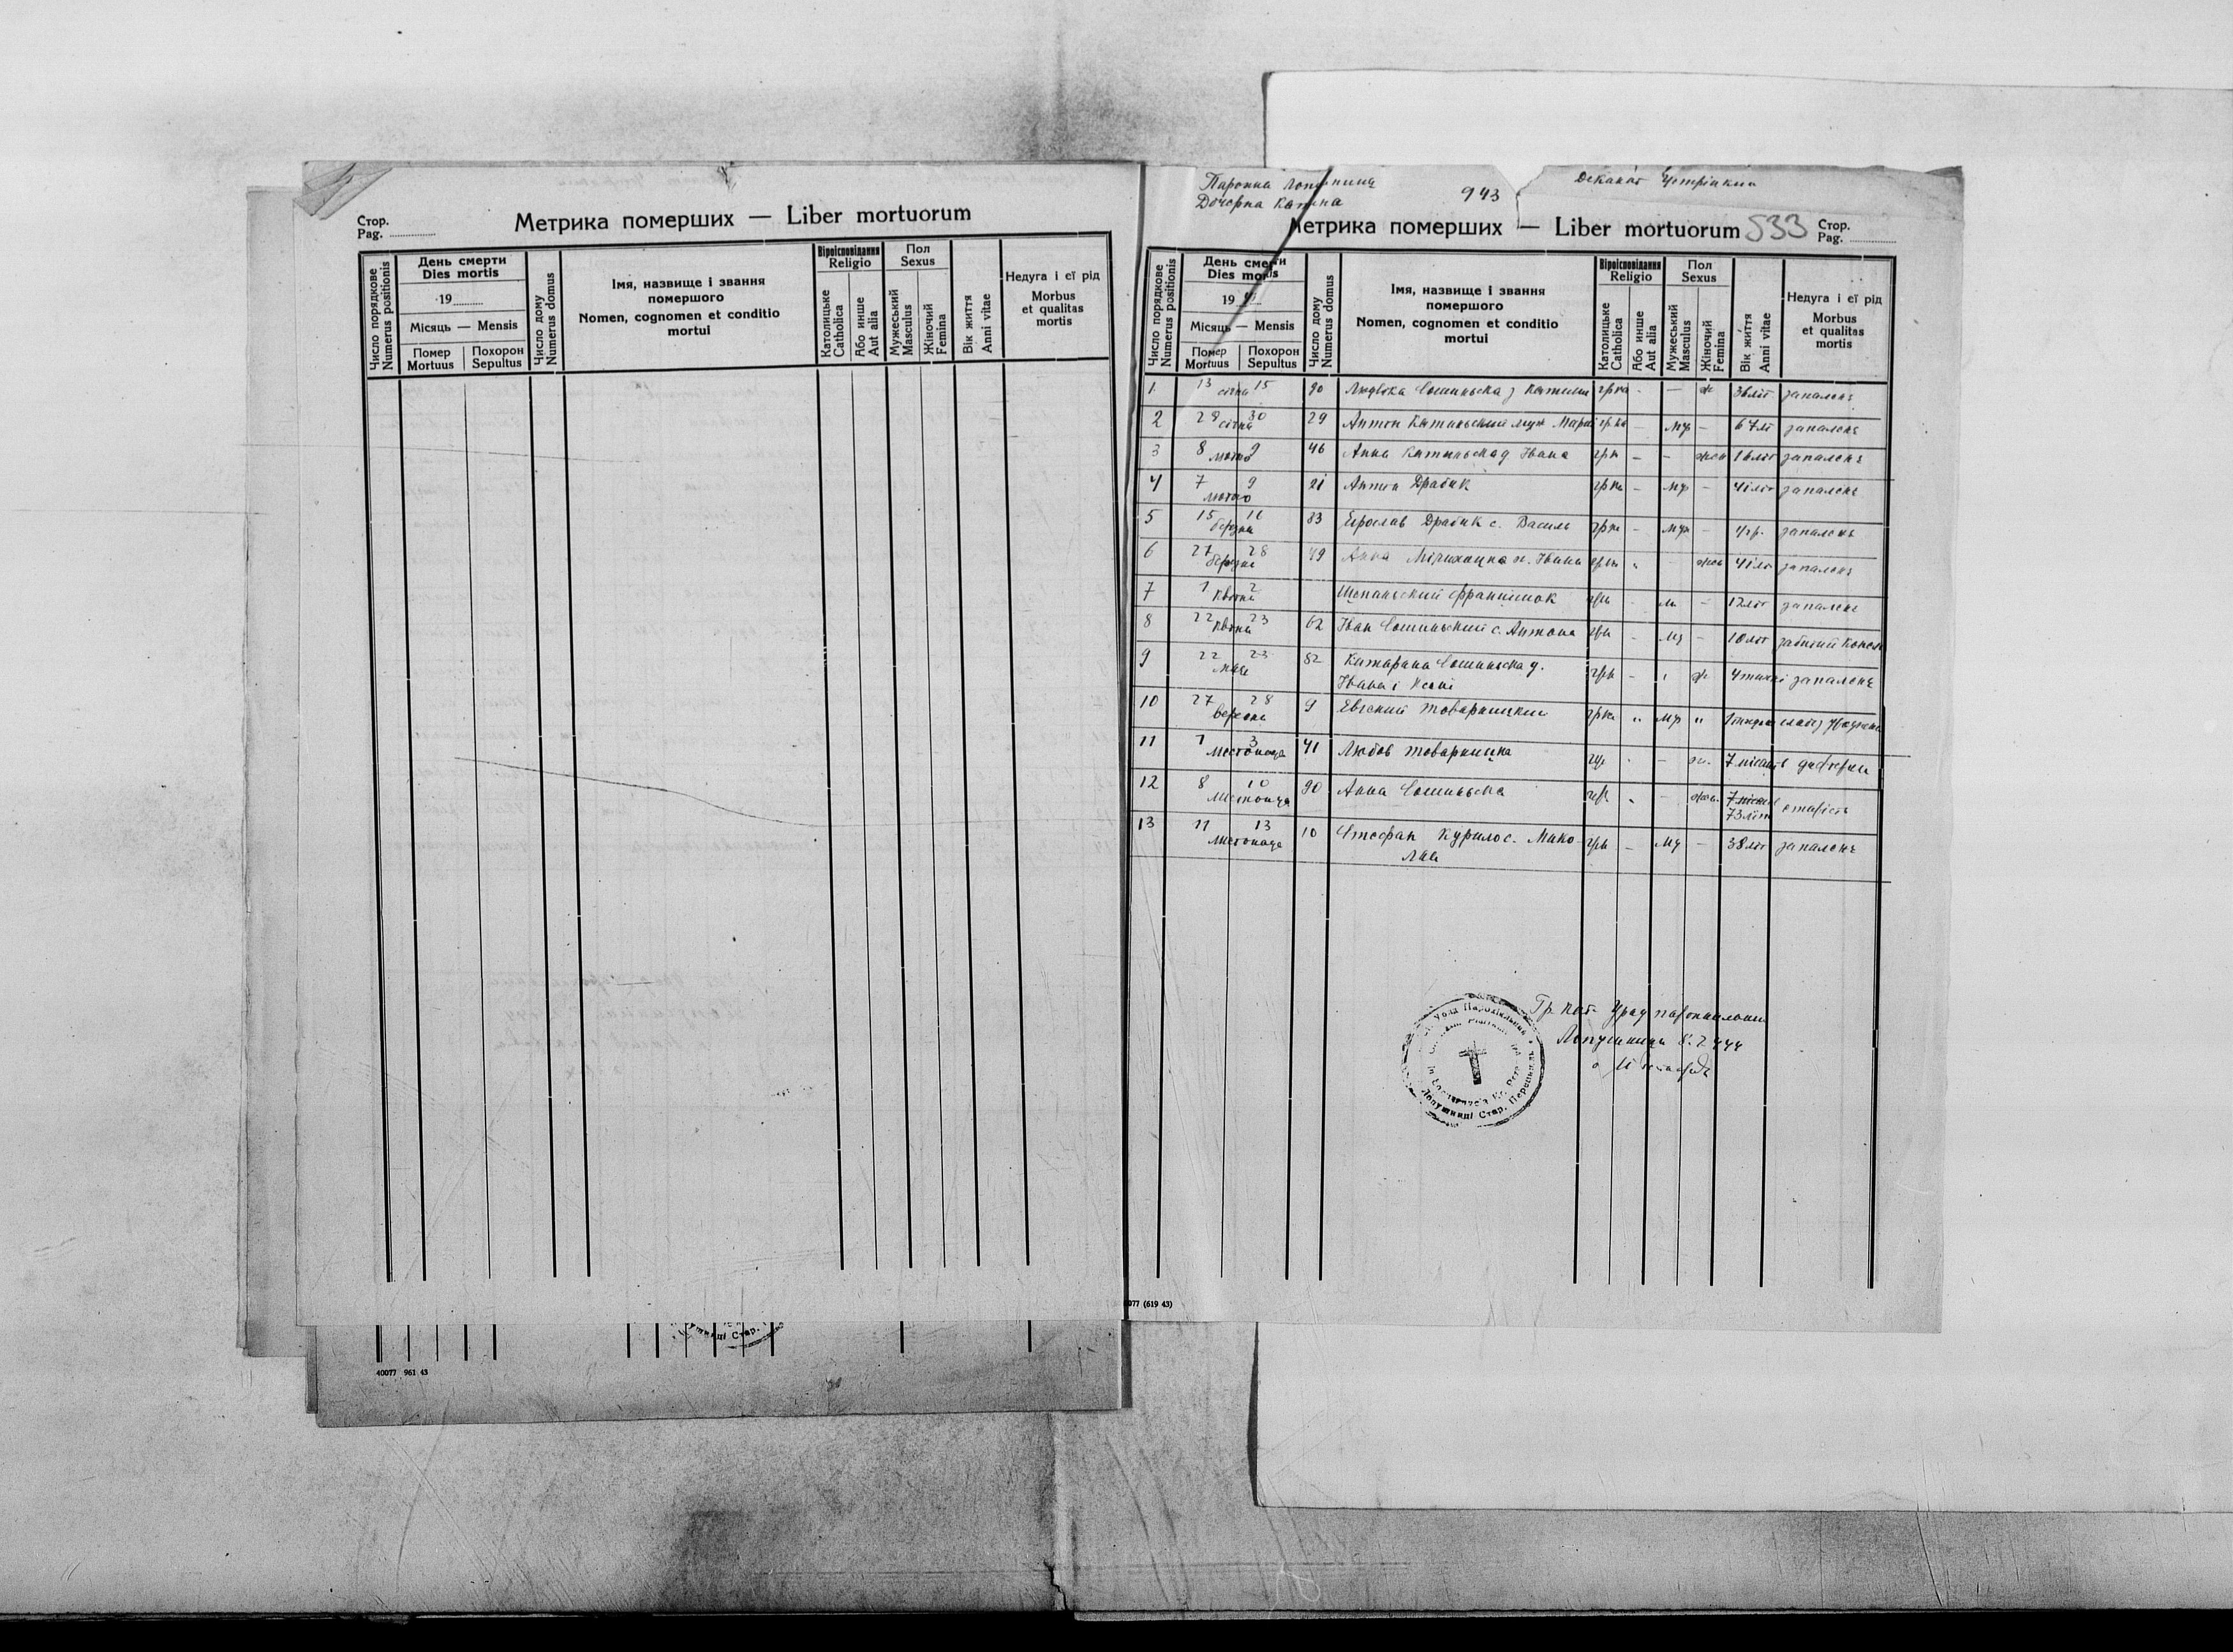 Стор.
Pag.
Метрика померших — Liber mortuorum
Число порядкове
Numerus positionis
День смерти
Dies mortis
19
Місяць — Mensis
Помер
Mortuus
Похорон
Sepultus
Число дому
Numerus domus
Імя, назвище і звання
помершого
Nomen, cognomen et conditio
mortui
Віроісповідання
Religio
Католицьке
Catholica
Або инше
Aut alia
Пол
Sexus
Мужеський
Masculus
Жіночий
Femina
Вік життя
Anni vitae
Недуга і єї рід
Morbus
et qualitas
mortis
40077 961 43
Дочорна
943
Деканат
Метрика померших — Liber mortuorum 533
Стор.
Pag.
Число порядкове
Numerus positionis
День смерти
Dies mortis
19
Місяць — Mensis
Помер
Mortuus
Похорон
Sepultus
Число дому
Numerus domus
Імя, назвище і звання
помершого
Nomen, cognomen et conditio
mortui
Віроісповідання
Religio
Католицьке
Catholica
Або инше
Aut alia
Пол
Sexus
Мужеський
Masculus
Жіночий
Femina
Вік життя
Anni vitae
Недуга і єї рід
Morbus
et qualitas
mortis
1 13 січня 15 90 з грк - — ж 36 літ запаленє
2 29 січня 30 29 Антон муж Марії грк — муж — 67 літ запаленє
3 8 лютого 9 46 Анна д Івана грк — — жен 16 літ запаленє
4 7 лютого 9 21 Антон Драбик грк — муж — 41 літ запаленє
5 15 березня 16 83 Ярослав Драбик с. Василя грк — муж — 4 р. запаленє
6 27 березня 28 49 Анна ж. Івана грк " жен 41 літ запаленє
7 1 квітня 2 Щепаньский Францішок грк - м — 12 літ запаленє
8 22 квітня 23 62 Іван с. Антона грк — муж — 10 літ забитий конем
9 22 мая 23 82 Катарина д. грк — ж запаленє
Івана і
10 27 вересня 28 9 Евгений Товарницкий грк " муж "
11 1 листопада 3 41 Любов Товарницка грк - — ж.
12 8 листопада 10 90 Анна грк " — жен. старість
73 літ
13 11 листопада 13 10 Стефан Курило с. Мико- грк — муж — 38 літ запаленє
лая
Гр кат Уряд парохіяльний
Лопушниця
Лопушниці Стар.
077 (619 43)